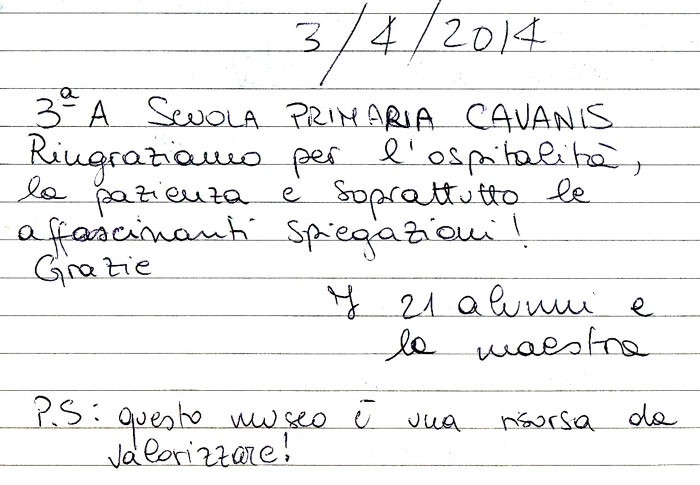 3/4/2014
3ª A SCUOLA PRIMARIA CAVANIS
Ringraziamo per l'ospitalità,
la pazienza e soprattutto le
affascinanti spiegazioni!
Grazie
I 21 alunni e
la maestra
P.S: questo museo è una risorsa da
valorizzare!